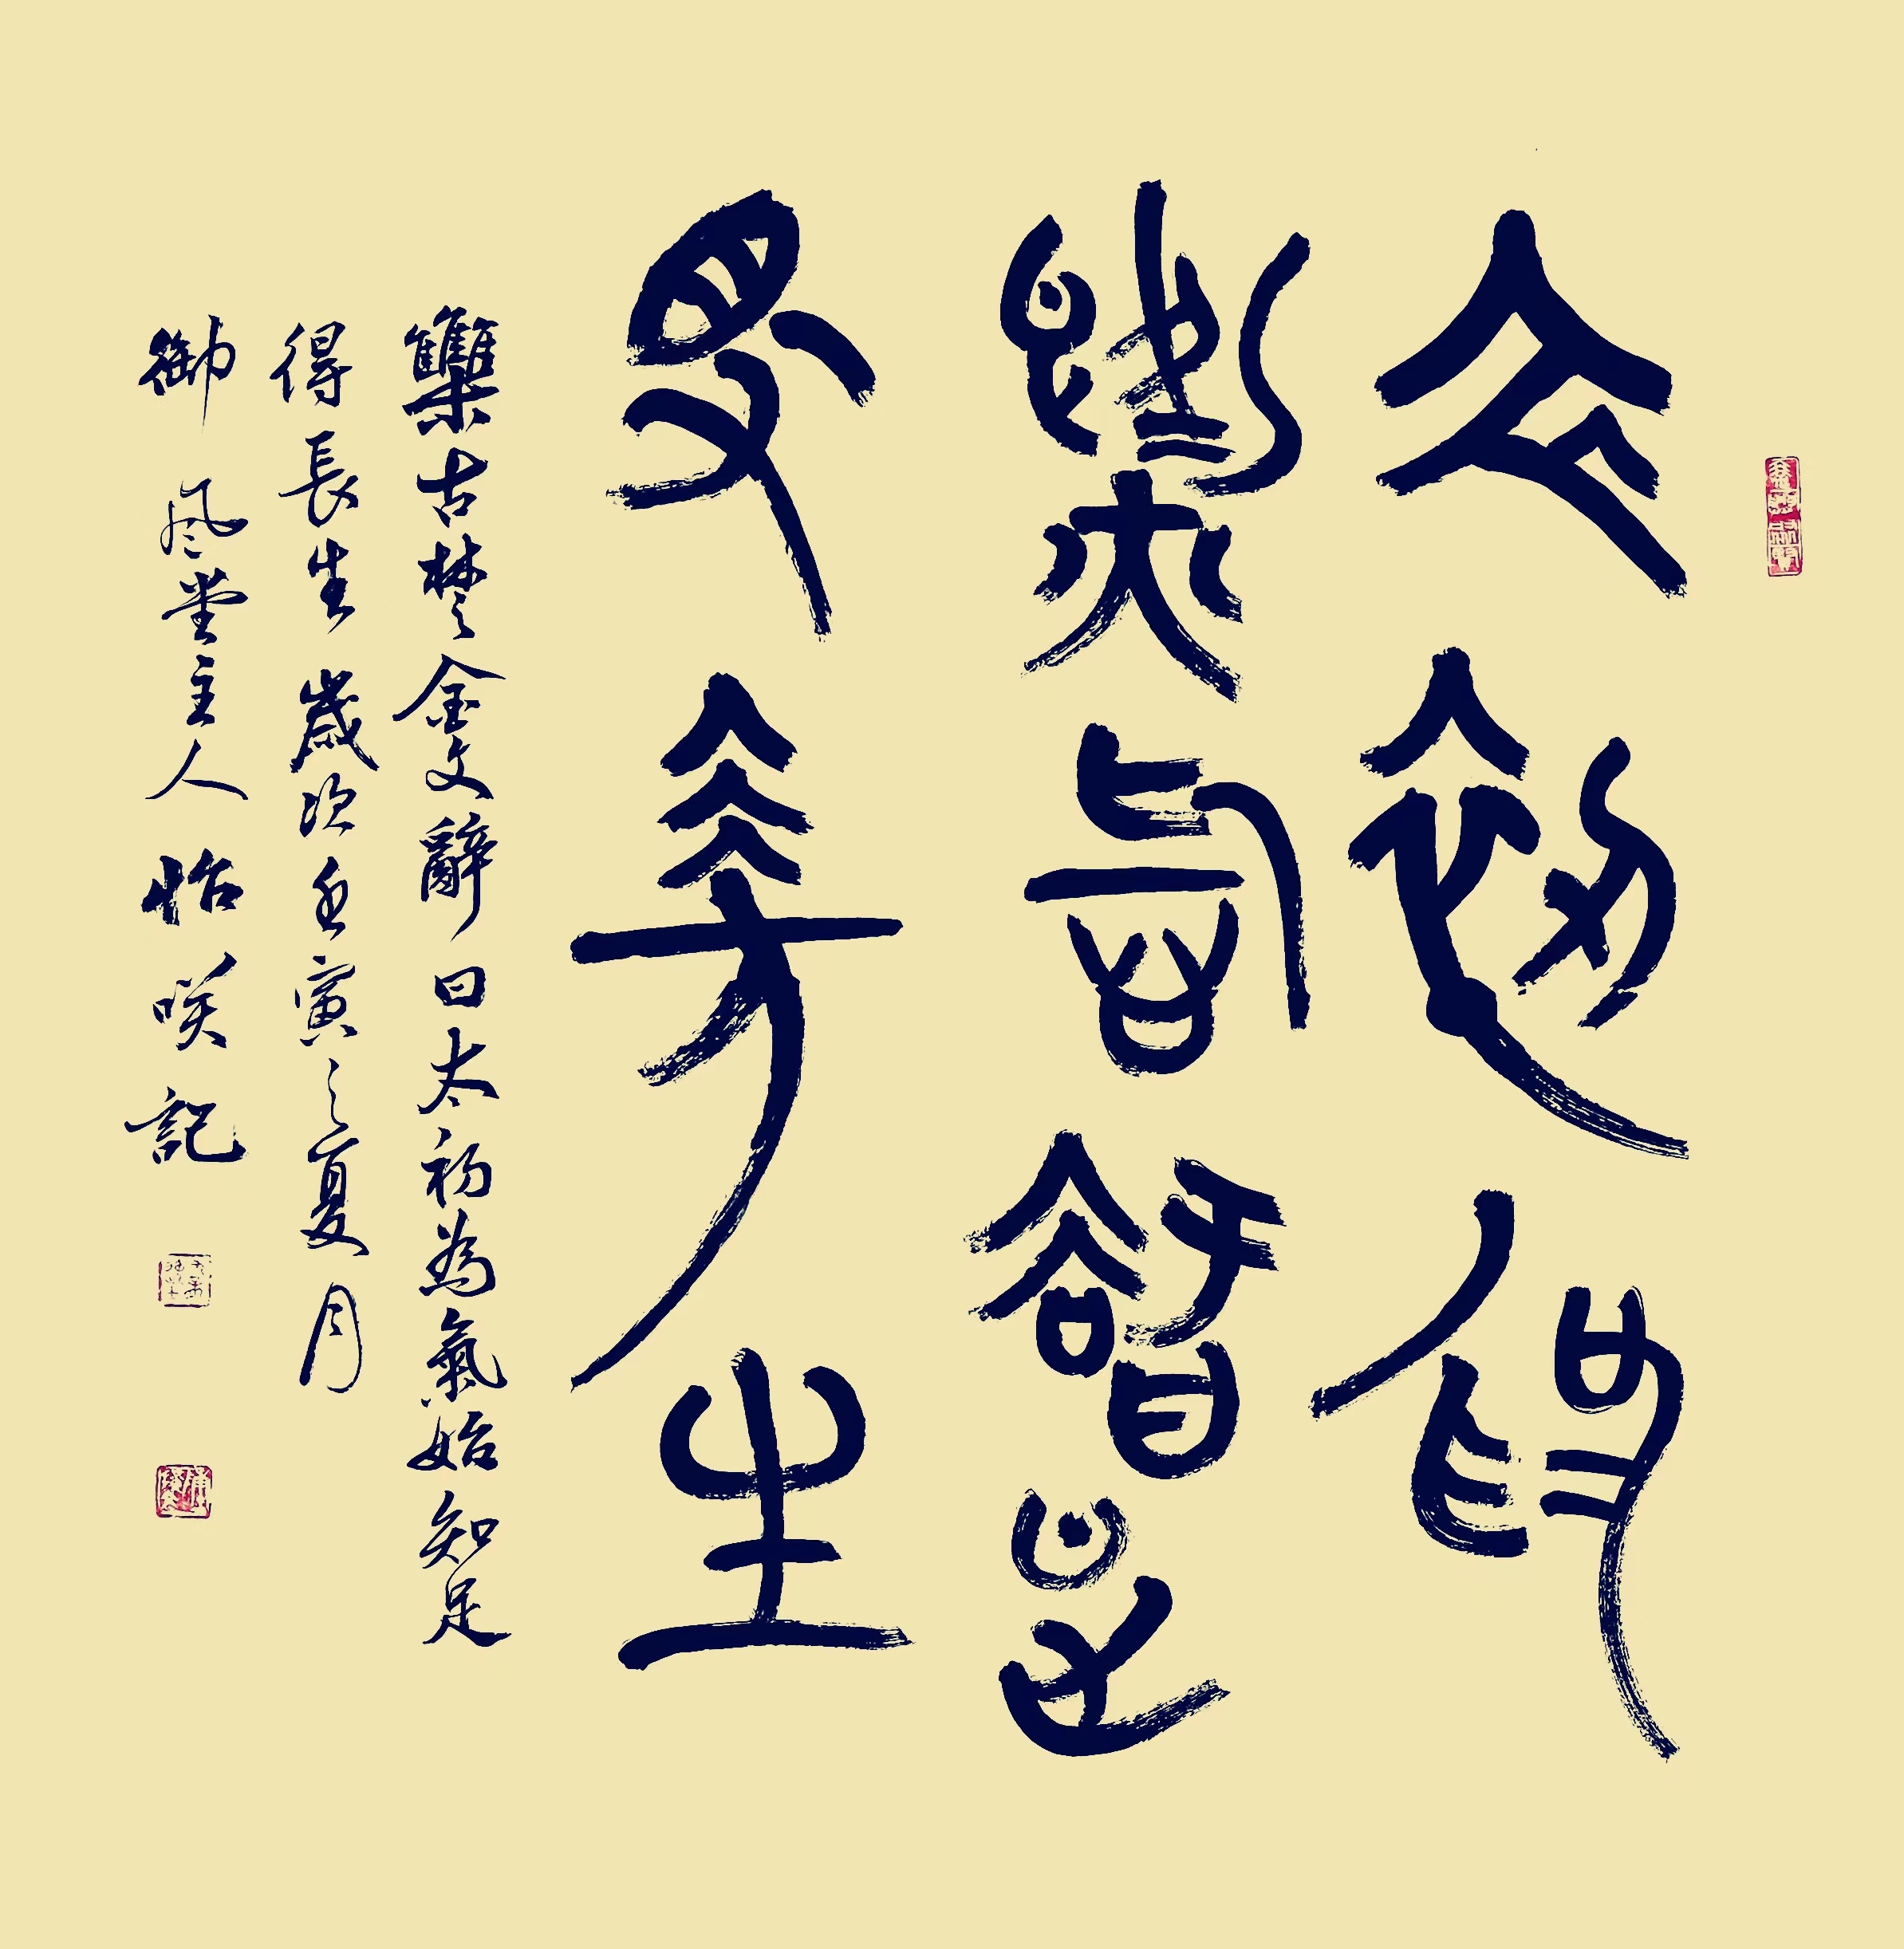 太初為
氣始知足
得長生
雧古楚金文辭曰太初為氣始知足
得長生歲次壬寅之夏月
御風堂主人怡咲記